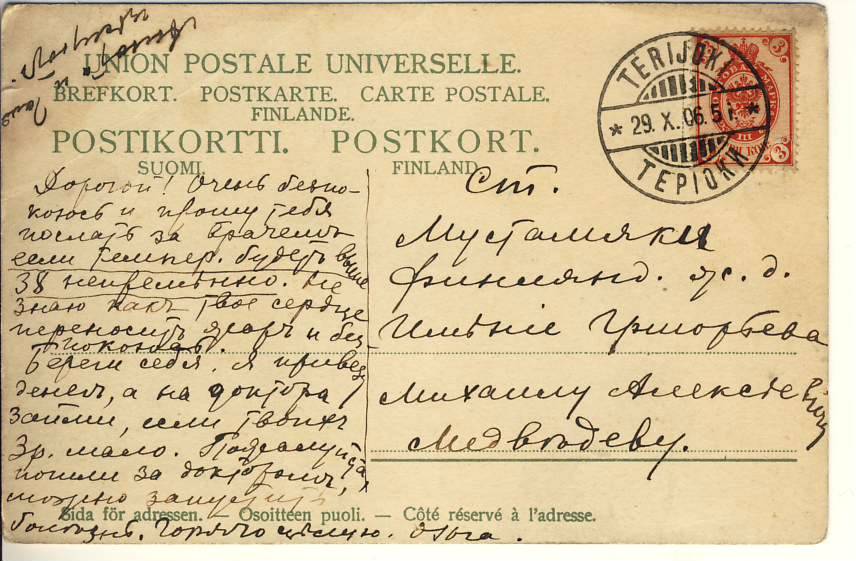 UNION POSTALE UNIVERSELLE.
BREFKORT. POSTKARTE. CARTE POSTALE.
FINLANDE.
POSTIKORTTI. POSTKORT.
SUOMI. FINLAND.
TERIJOKI
* 29. X. 06. 5 i. *
ТЕРІОКИ
3
3
Дорогой! Очень безпо-
коюсь и прошу тебя
послать за врачемъ
если темпер. будетъ выше
38 непремѣнно. Не
знаю какъ твое сердце
переноситъ жаръ и без-
покоюсь.
Береги себя. Я привезу
денег, а на доктора
займи, если твоихъ
Зр. мало. Пожалуйста,
пошли за докторомъ,
можно запустить
болѣзнь. Горячо цѣлую. Ольга.
Ст.
Мустамяки
Финлянд. ж. д.
Имѣніе Григорьева
Михаилу Алексѣевичу
Медвѣдеву.
Sida för adressen. — Osoitteen puoli. — Côté réservé à l'adresse.